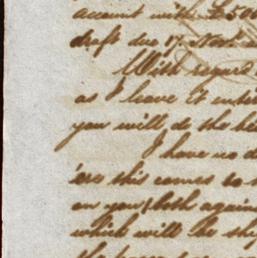 account with £500
draft due 17 Nov
With regard
as I leave it enti
you will do the be
I have no d
ere this comes to
on you, both again
which will be shi